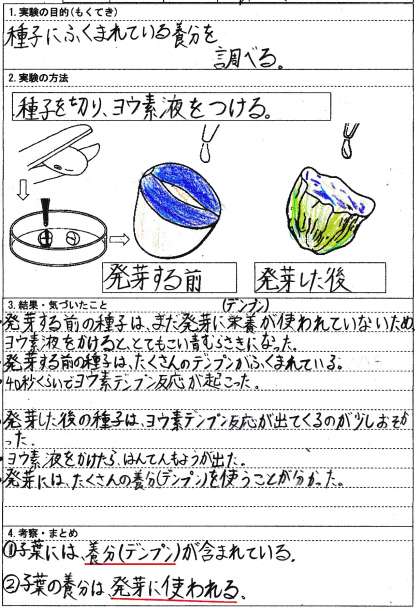 1. 実験の目的(もくてき)
種子にふくまれている養分を
調べる。
2. 実験の方法
種子を切り、ヨウ素液をつける。
発芽する前
発芽した後
3. 結果・気づいたこと
(デンプン)
・発芽する前の種子は、まだ発芽に栄養が使われていないため、
ヨウ素液をかけると、とてもこい青むらさきになった。
・発芽する前の種子は、たくさんのデンプンがふくまれている。
・40秒くらいでヨウ素デンプン反応が起こった。
・発芽した後の種子は、ヨウ素デンプン反応が出てくるのが少しおそか
った。
・ヨウ素液をかけたら、はんてんもようが出た。
・発芽には、たくさんの養分(デンプン)を使うことが分かった。
4. 考察・まとめ
①子葉には、養分(デンプン)が含まれている。
②子葉の養分は、発芽に使われる。